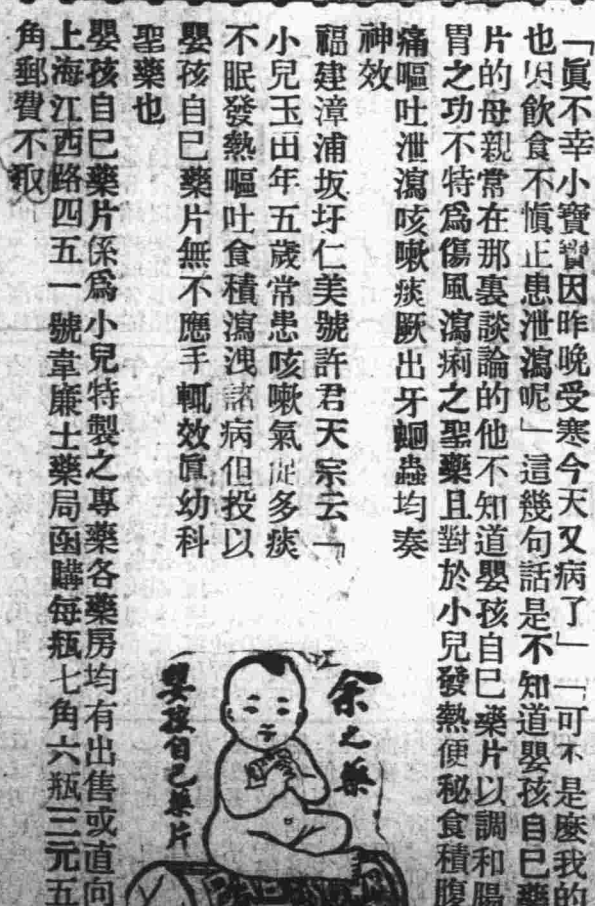 「眞不幸小寶寶因昨晚受寒今天又病了」「可不是麽我的
也因飲食不愼正患泄瀉呢」這幾句話是不知道嬰孩自已藥
片的母親常在那裏談論的他不知道嬰孩自已藥片以調和腸
胃之功不特爲傷風瀉痢之聖藥且對於小兒發熱便秘食積腹
痛嘔吐泄瀉咳嗽痰厥出牙蛔蟲均奏
神效
福建漳浦坂圩仁美號許君天宗云「
小兒玉田年五歲常患咳嗽氣促多痰
不眠發熱嘔吐食積瀉洩諸病但投以
嬰孩自已藥片無不應手輒效眞幼科
聖藥也
嬰孩自已藥片係爲小兒特製之專藥各藥房均有出售或直向
上海江西路四五一號韋廉士藥局函購每瓶七角六瓶三元五
角郵費不取
余之藥
嬰孩自已藥片